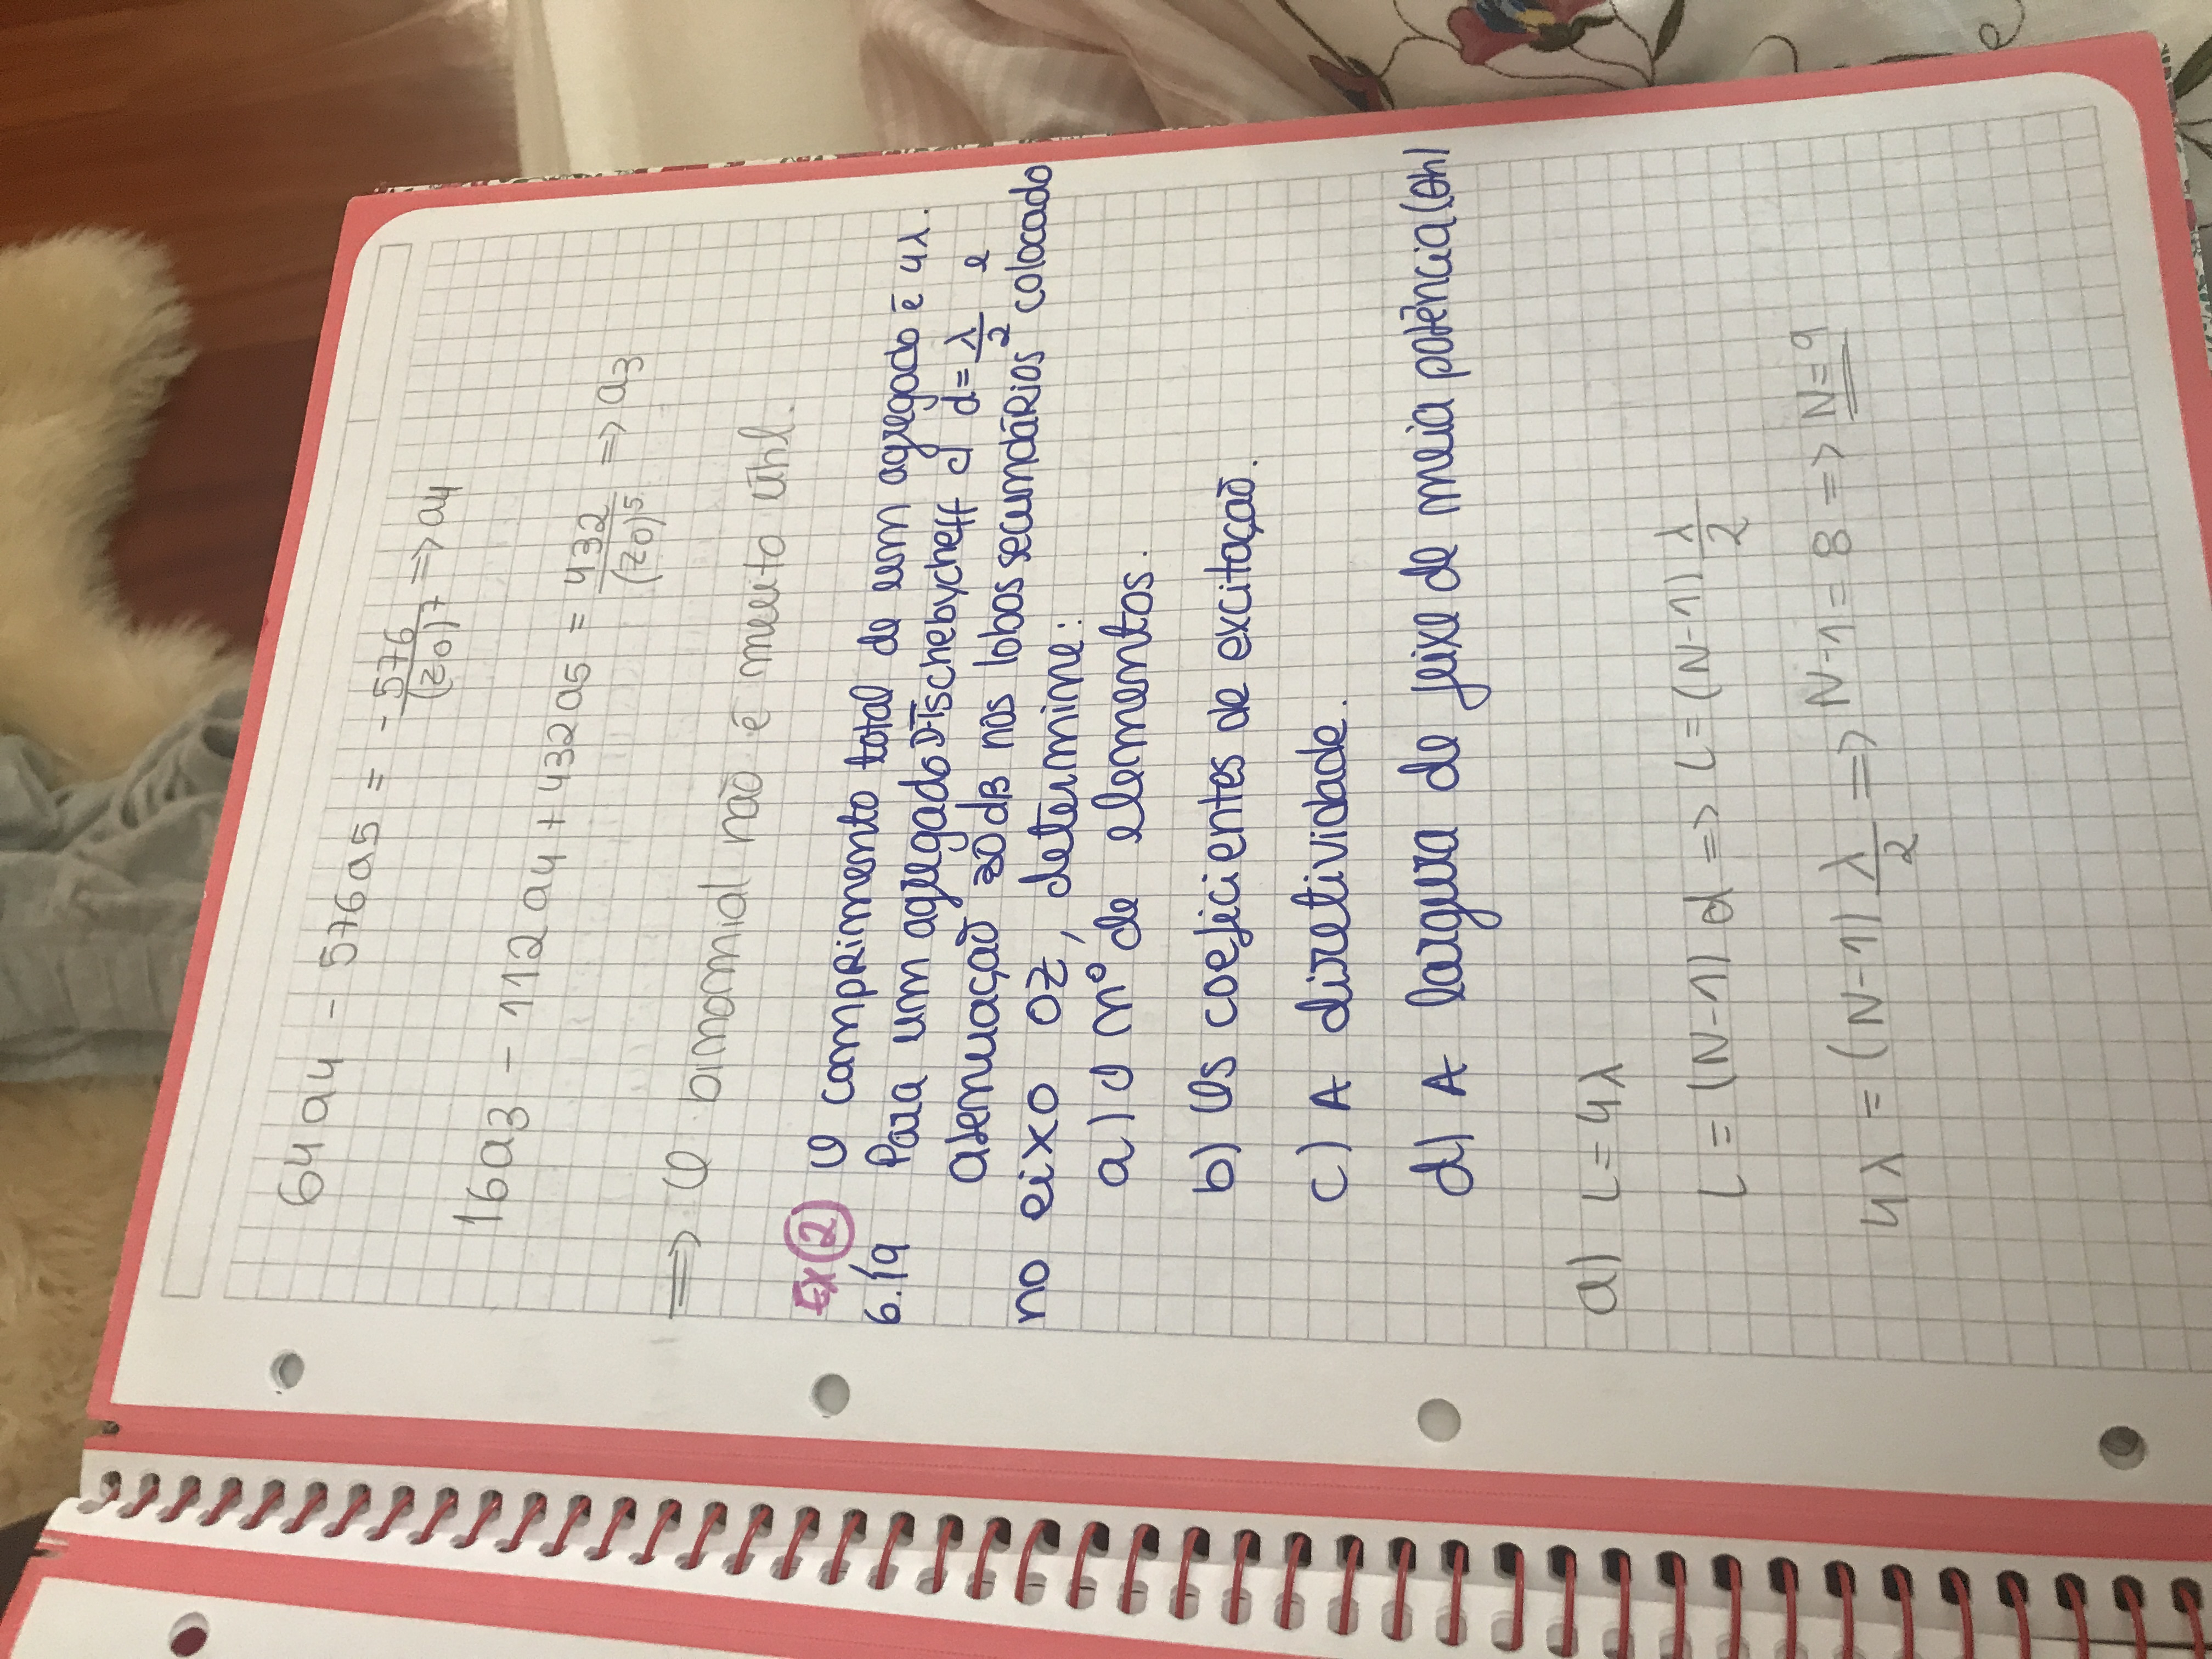 64a4 - 576a5 = -576/(z0)^7 => a4
16a3 - 112a4 + 432a5 = 432/(z0)^5 => a3
=> O binomial não é muito útil.
Ex 2 O comprimento total de um agregado é 4λ.
6.19 Para um agregado D-Tschebycheff c/ d=λ/2 e
atenuação 30dB nos lobos secundários colocado
no eixo OZ, determine:
a) O nº de elementos.
b) Os coeficientes de excitação.
c) A diretividade.
d) A largura de feixe de meia potência (θh)
a) L=4λ
L = (N-1) d => L=(N-1) λ/2
4λ = (N-1) λ/2 => N-1=8 => N=9